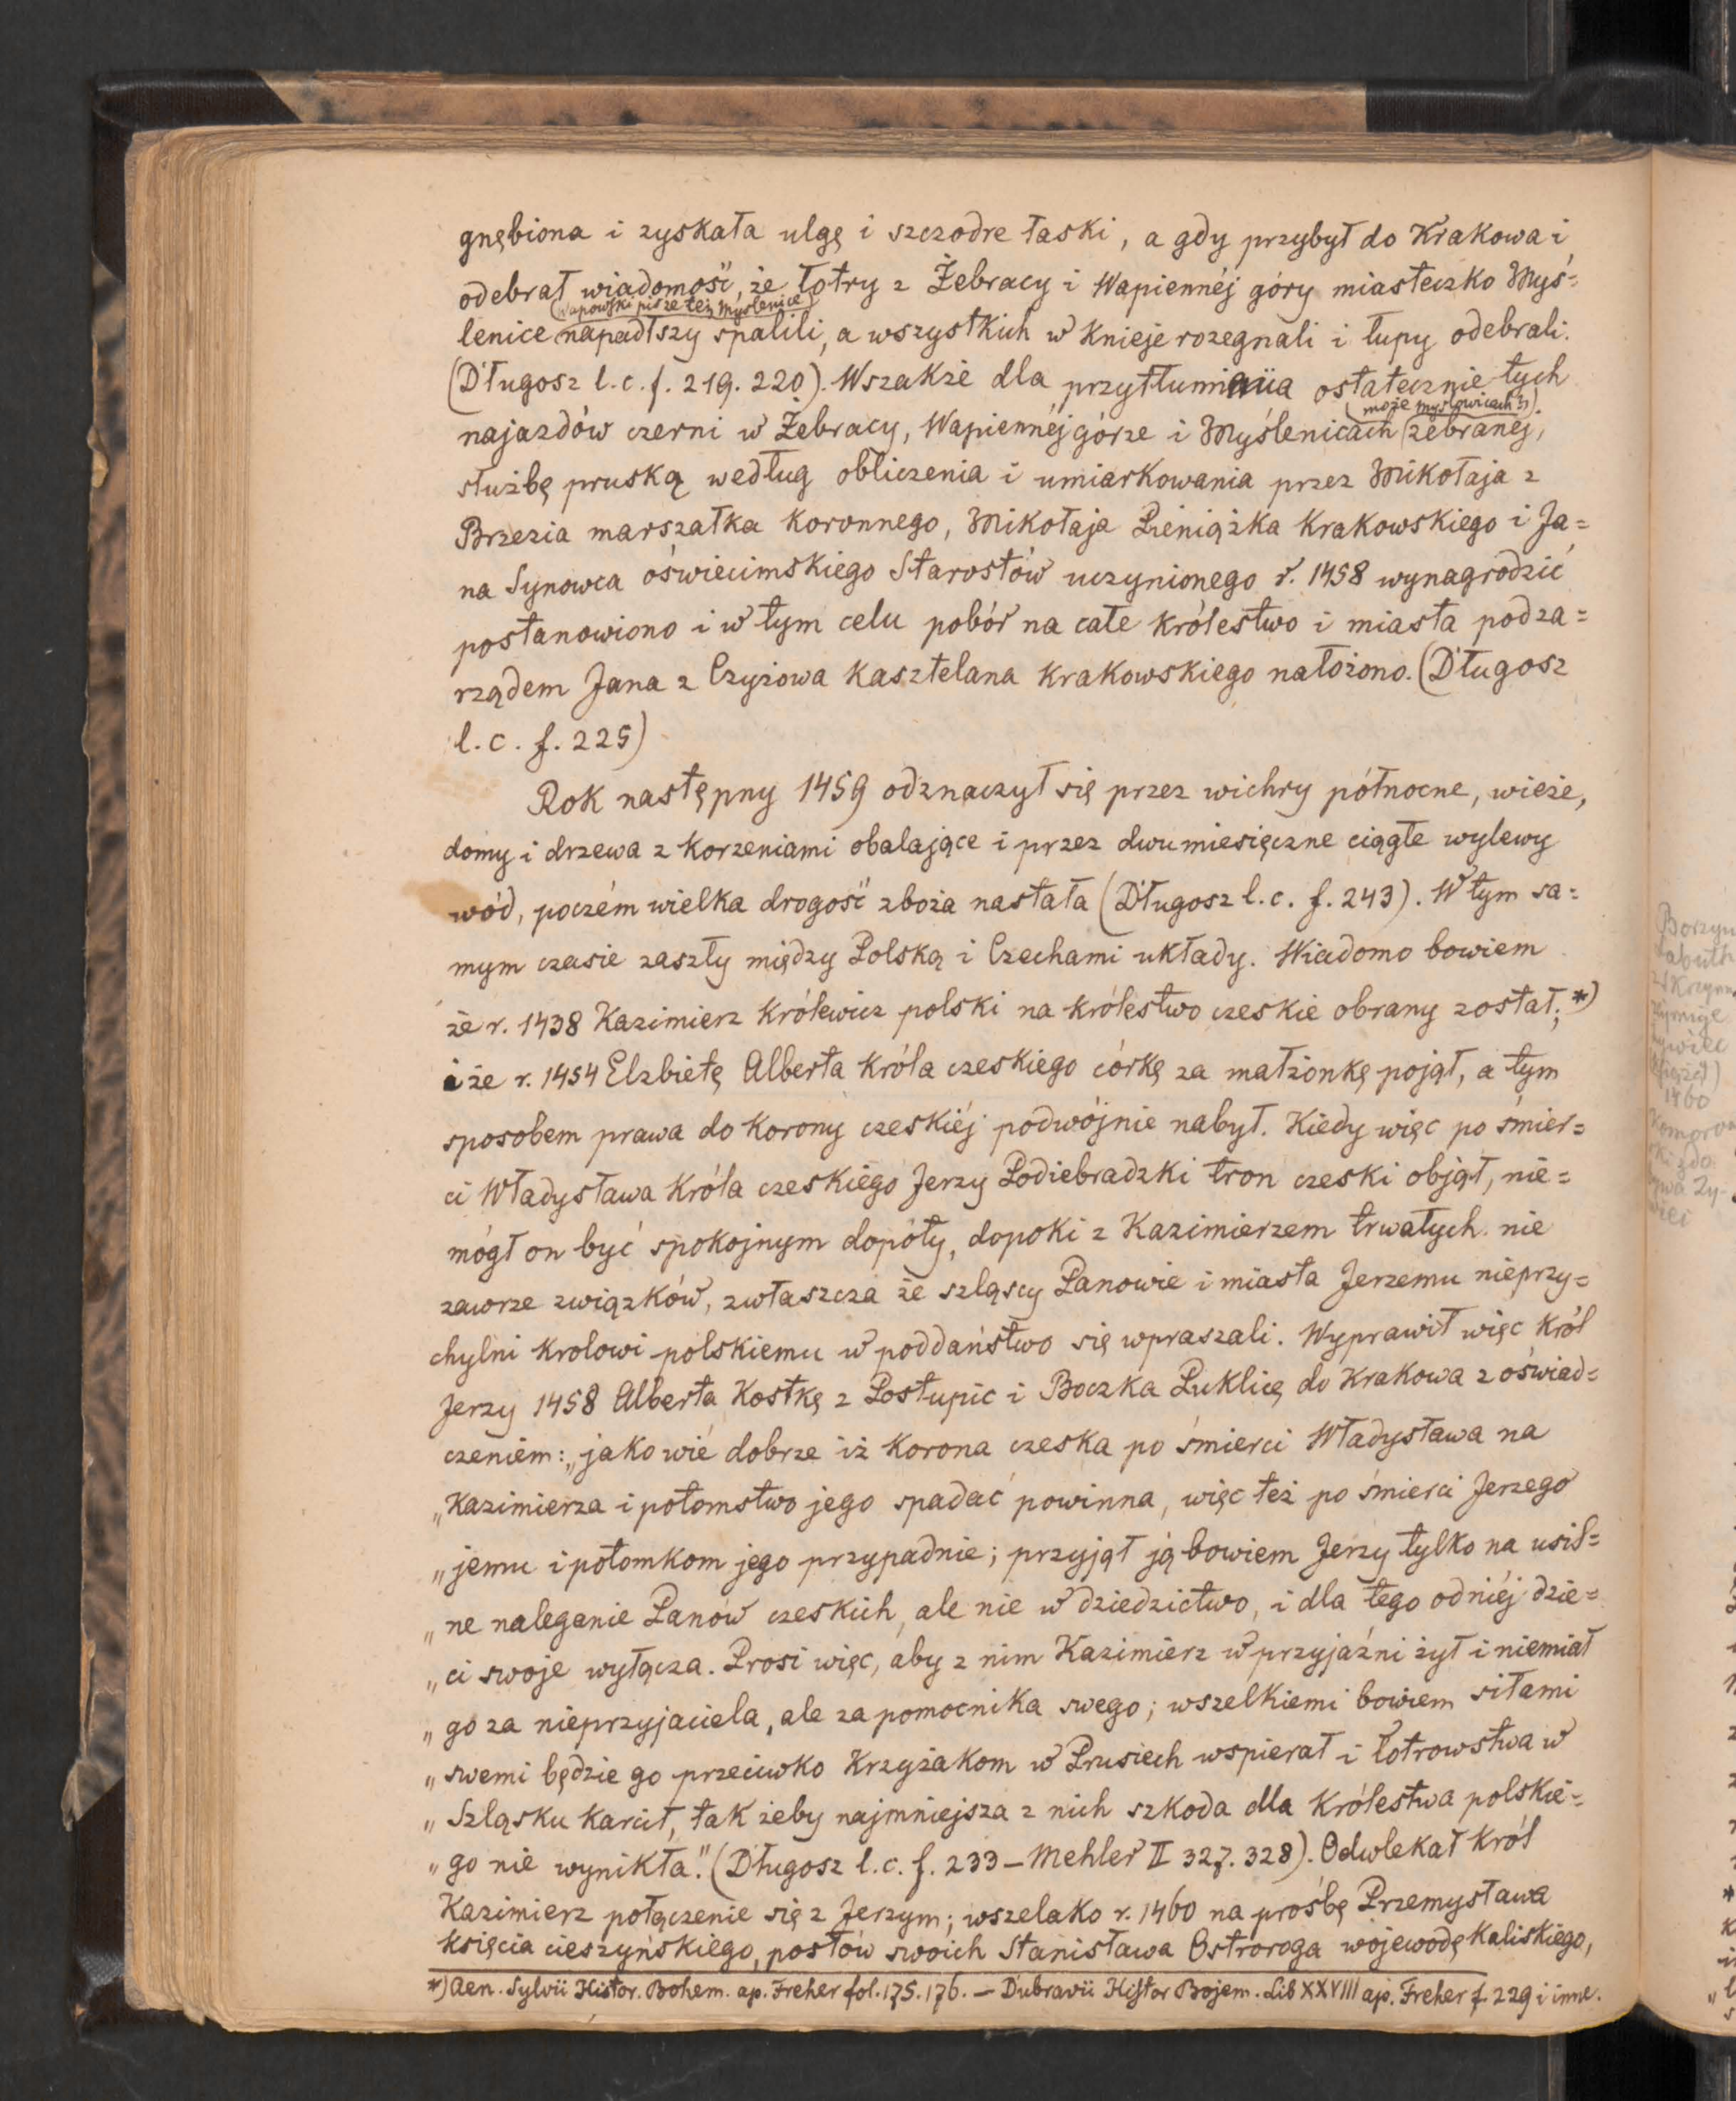 gnębiona i zyskała ulgę i szczodre łaski, a gdy przybył do Krakowa i
odebrał wiadomość, że łotry z Żebracy i Wapiennéj góry miasteczko Myś=
(Wapowski pisze też Myślenice)
lenice napadłszy spalili, a wszystkich w knieje rozegnali i łupy odebrali.
(Długosz l.c.f. 219. 220). Wszakże dla przytłumienia ostatecznie tych
(może Mysłowicach?)
najazdów czerni w Żebracy, Wapiennéj górze i Myślenicach zebranéj,
służbę pruską według obliczenia i umiarkowania przez Mikołaja z
Brzezia marszałka koronnego, Mikołaja Pieniążka Krakowskiego i Ja=
na Synowca oświecimskiego Starostów uczynionego r. 1458 wynagrodzić
postanowiono i w tym celu pobór na całe królestwo i miasta pod za=
rządem Jana z Czyżowa Kasztelana Krakowskiego nałożono. (Długosz
l.c. f. 225)
Rok następny 1459 odznaczył się przez wichry północne, wieże,
domy i drzewa z korzeniami obalające i przez dwumiesięczne ciągłe wylewy
wód, poczém wielka drogość zboża nastała (Długosz l.c. f. 243). W tym sa=
mym czasie zaszły między Polską i Czechami układy. Wiadomo bowiem
że r. 1438 Kazimierz królewicz polski na królestwo czeskie obrany został; *)
i że r. 1454 Elzbietę Alberta króla czeskiego córkę za małżonkę pojął, a tym
sposobem prawa do korony czeskiéj podwójnie nabył. Kiedy więc po śmier=
ci Władysława króla czeskiego Jerzy Podiebradzki tron czeski objął, nie=
mógł on być spokojnym dopóty, dopoki z Kazimierzem trwałych nie
zawrze związków, zwłaszcza że szląscy Panowie i miasta Jerzemu nieprzy=
chylni krolowi polskiemu w poddaństwo się wpraszali. Wyprawił więc król
Jerzy 1458 Alberta Kostkę z Postupic i Boczka Puklicę do Krakowa z oświad=
czeniem: „jako wié dobrze iż korona czeska po śmierci Władysława na
„Kazimierza i potomstwo jego spadać powinna, więc też po śmierci Jerzego
„jemu i potomkom jego przypadnie; przyjął ją bowiem Jerzy tylko na usil=
„ne naleganie Panów czeskich, ale nie w dziedzictwo, i dla tego od niéj dzie=
„ci swoje wyłącza. Prosi więc, aby z nim Kazimierz w przyjaźni żył i niemiał
„go za nieprzyjaciela, ale za pomocnika swego; wszelkiemi bowiem siłami
„swemi będzie go przeciwko Krzyżakom w Prusiech wspierał i łotrowstwa w
„Szląsku karcił, tak żeby najmniejsza z nich szkoda dla królestwa polskie=
„go nie wynikła." (Długosz l.c. f. 233 – Mehler II 327. 328). Odwlekał król
Kazimierz połączenie się z Jerzym; wszelako r. 1460 na prośbę Przemysława
księcia cieszyńskiego, posłów swoich Stanisława Ostroroga wojewodę Kaliskiego,
*) Aen. Sylvii Histor. Bohem. ap. Freher fol. 175. 176. – Dubravii Histor Bojem. Lib XXVIII ap. Freher f 229 i inne.
1460